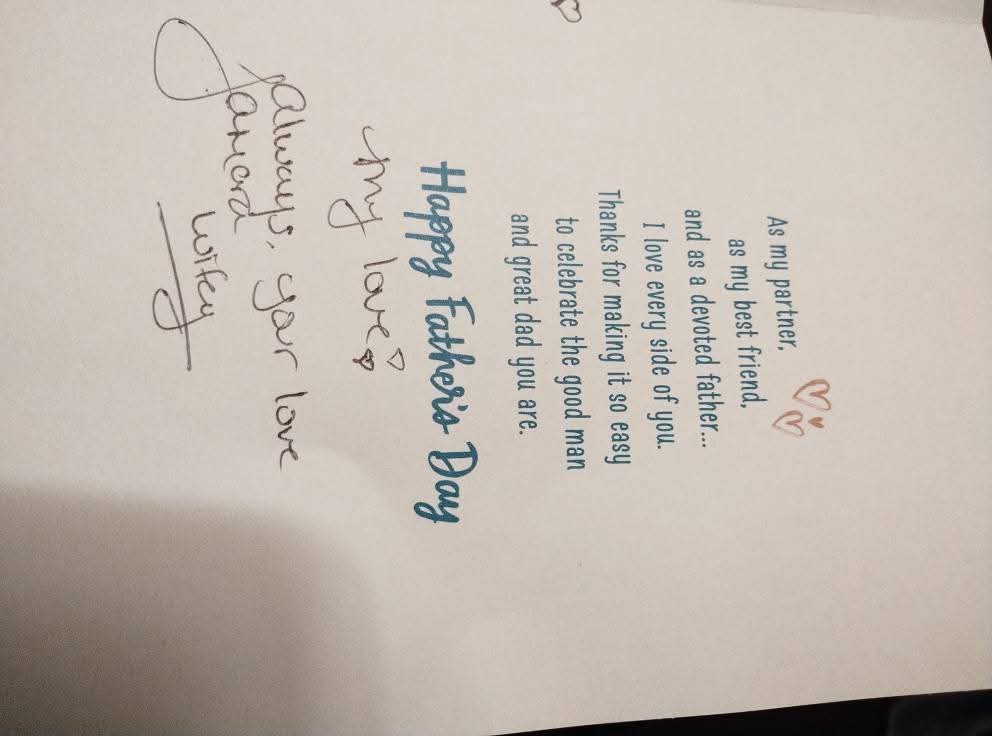 As my partner,
as my best friend,
and as a devoted father...
I love every side of you.
Thanks for making it so easy
to celebrate the good man
and great dad you are.
Happy Father's Day
my love
Always, your love
wifey